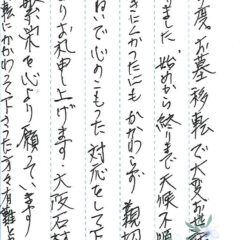 度、お墓移転で大変お
きました。始めから終りまで天候不順
きにくかったにもかかわらず親切
ねいで心のこもった対応をして下
よりお礼申し上げます。大阪石材
繁栄を心より願っています
転にかかわって下さった方々有難と